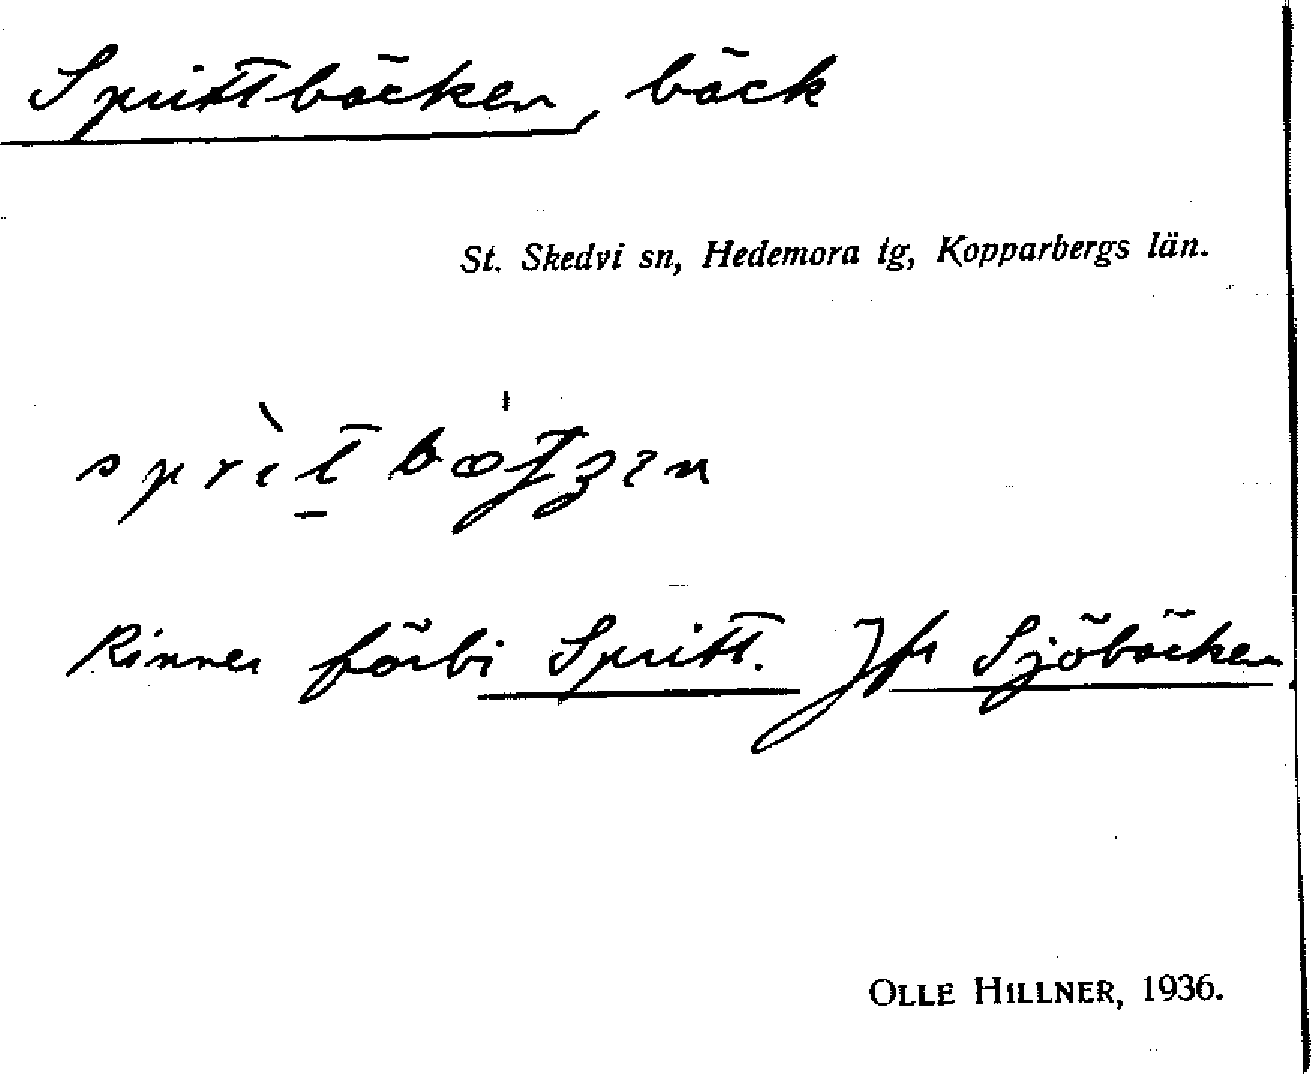 Sprittbäcken, bäck
St. Skedvi sn, Hedemora tg, Kopparbergs län.
Rinner förbi Spritt. Jfr Sjöbäcken.
OLLE HILLNER, 1936.